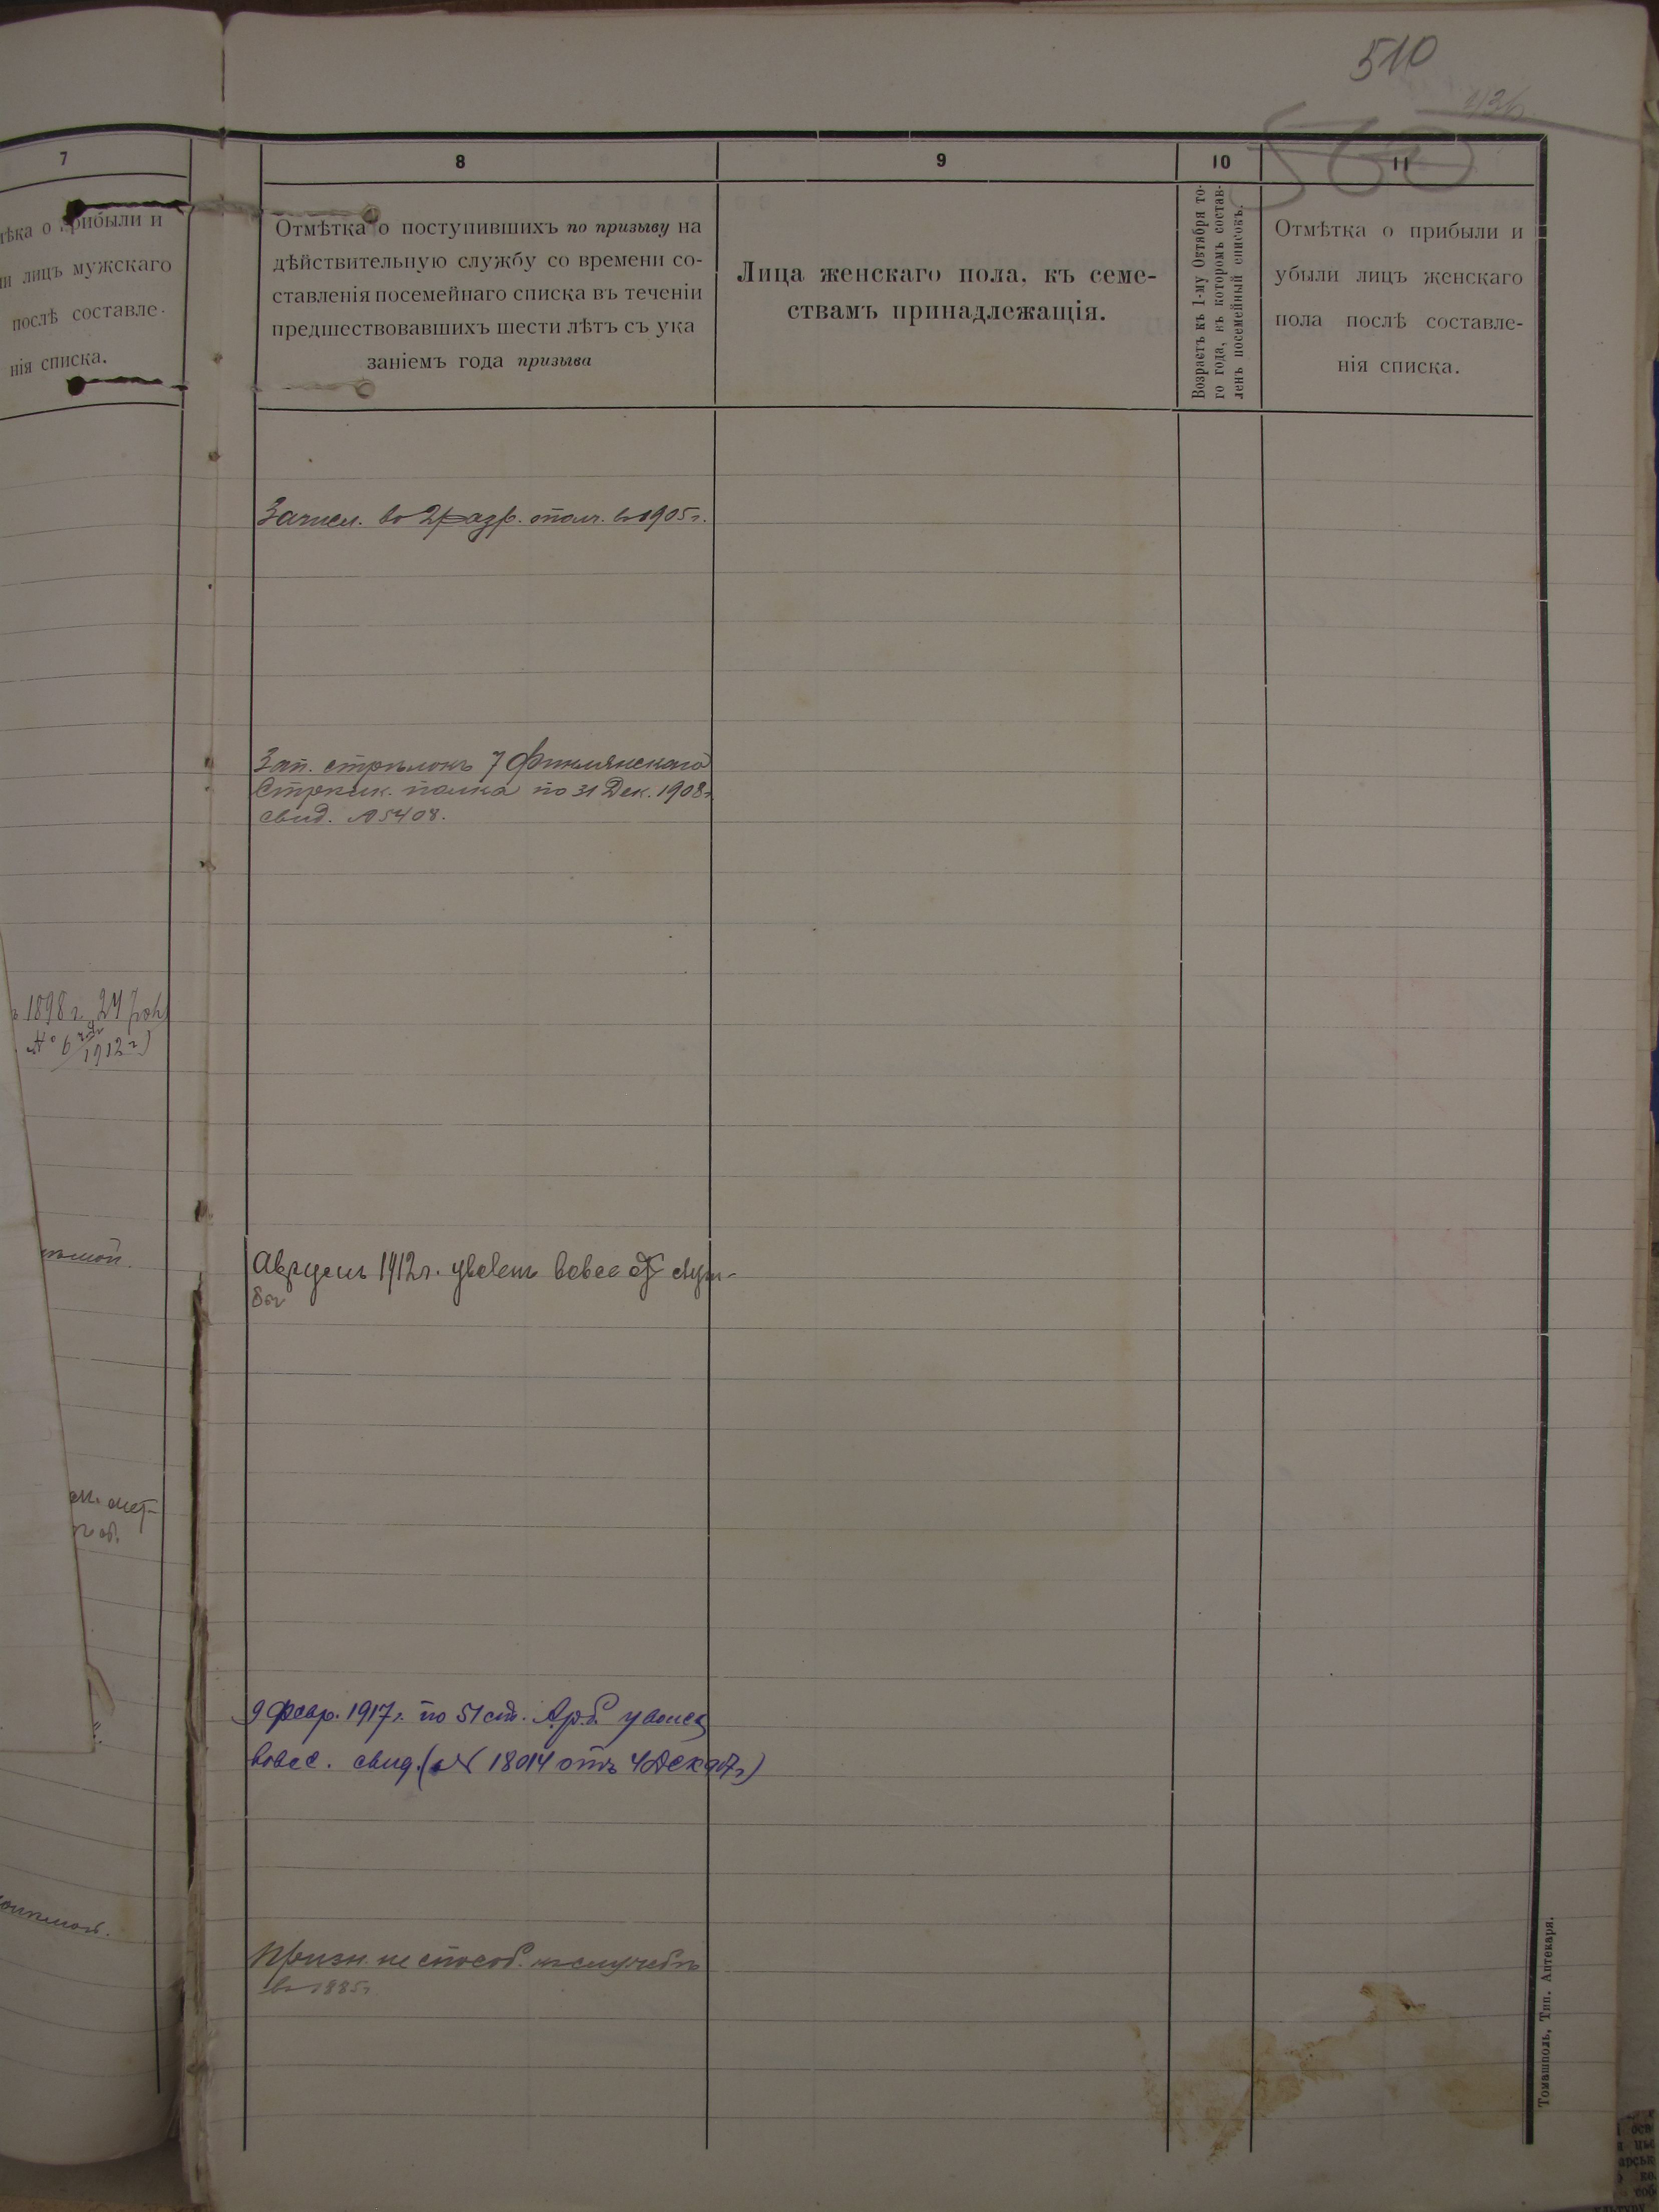 510
436
560
7
8
9
10
11
тка о прибыли и
ли лицъ мужскаго
послѣ составле-
нія списка.
Отмѣтка о поступившихъ по призыву на
дѣйствительную службу со времени со-
ставленія посемейнаго списка въ теченіи
предшествовавшихъ шести лѣтъ съ ука
заніемъ года призыва
Лица женскаго пола, къ семе-
ствамъ принадлежащія.
Возрастъ къ 1-му Октября то-
го года, къ которомъ состав-
ленъ посемейный списокъ.
Отмѣтка о прибыли и
убыли лицъ женскаго
пола послѣ составле-
нія списка.
Зачисл. во 2 разр. ополч. въ 1905 г.
Зап. стрѣлокъ 7 Финляндскаго
Стрѣлк. полка по 31 Дек. 1908 г.
свид. № 5408.
1898 г. 24
№ 6
1912 г)
1912 г. уволенъ вовсе отъ служ-
бы
9 февр. 1917 г. по 51 ст.
вовсе. свид. (№ 18014 отъ
Призн. не способ. къ службѣ
въ 1885 г.
Томашполь, Тип. Аптекаря.